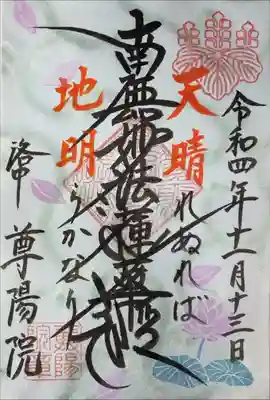 令和四年十一月十三日
天晴れぬれば
南無妙法蓮華経
地明らかなり
洛中 尊陽院